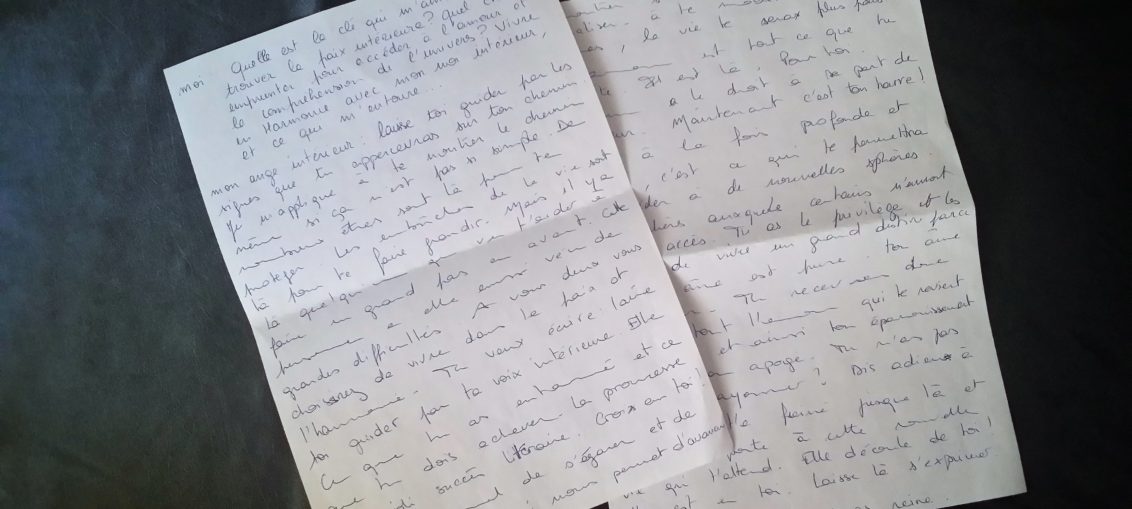 moi Quelle est la clé qui m'am
trouver la paix intérieure? Quel
emprunter pour accéder à l'amour et
la compréhension de l'univers? Vivre
en Harmonie avec mon moi intérieur,
et ce qui m'entoure...
mon ange intérieur: laisse toi guider par les
signes que tu appercevras sur ton chemin.
Je m'applique à te montrer le chemin
même si ça n'est pas si simple. De
nombreux êtres sont là pour te
protéger. Les embûches de la vie sont
là pour te faire grandir. Mais il y a
là quelqu'un qui va t'aider à
faire un grand pas en avant. Cette
personne a elle aussi vécu de
grandes difficultés. A vous deux vous
choisirez de vivre dans la paix et
l'harmonie. Tu veux écrire: laisse
toi guider par ta voix intérieure. Elle
Ce que tu as entamé et ce
que tu dois achever. La promesse
succès littéraire. Crois en toi!
de s'égarer et de
nous permet d'avancer
la vie te sera plus
et tout ce que tu
est là, Pour toi.
a le droit à sa part de
Maintenant c'est ton heure!
à la fois profonde et
c'est ce qui te permettra
à de nouvelles sphères.
auxquels certains n'auront
accès. Tu as le privilège et les
de vivre un grand destin parce
âme est pure. ton âme
Tu recevras donc
tout l'amour qui te revient
et ainsi ton épanouissement
apogé. Tu n'as pas
Dis adieu à
fermé jusque là et
porte à cette nouvelle
vie qui t'attend. Elle découle de toi!
est en toi. Laisse là s'exprimer.
reine.